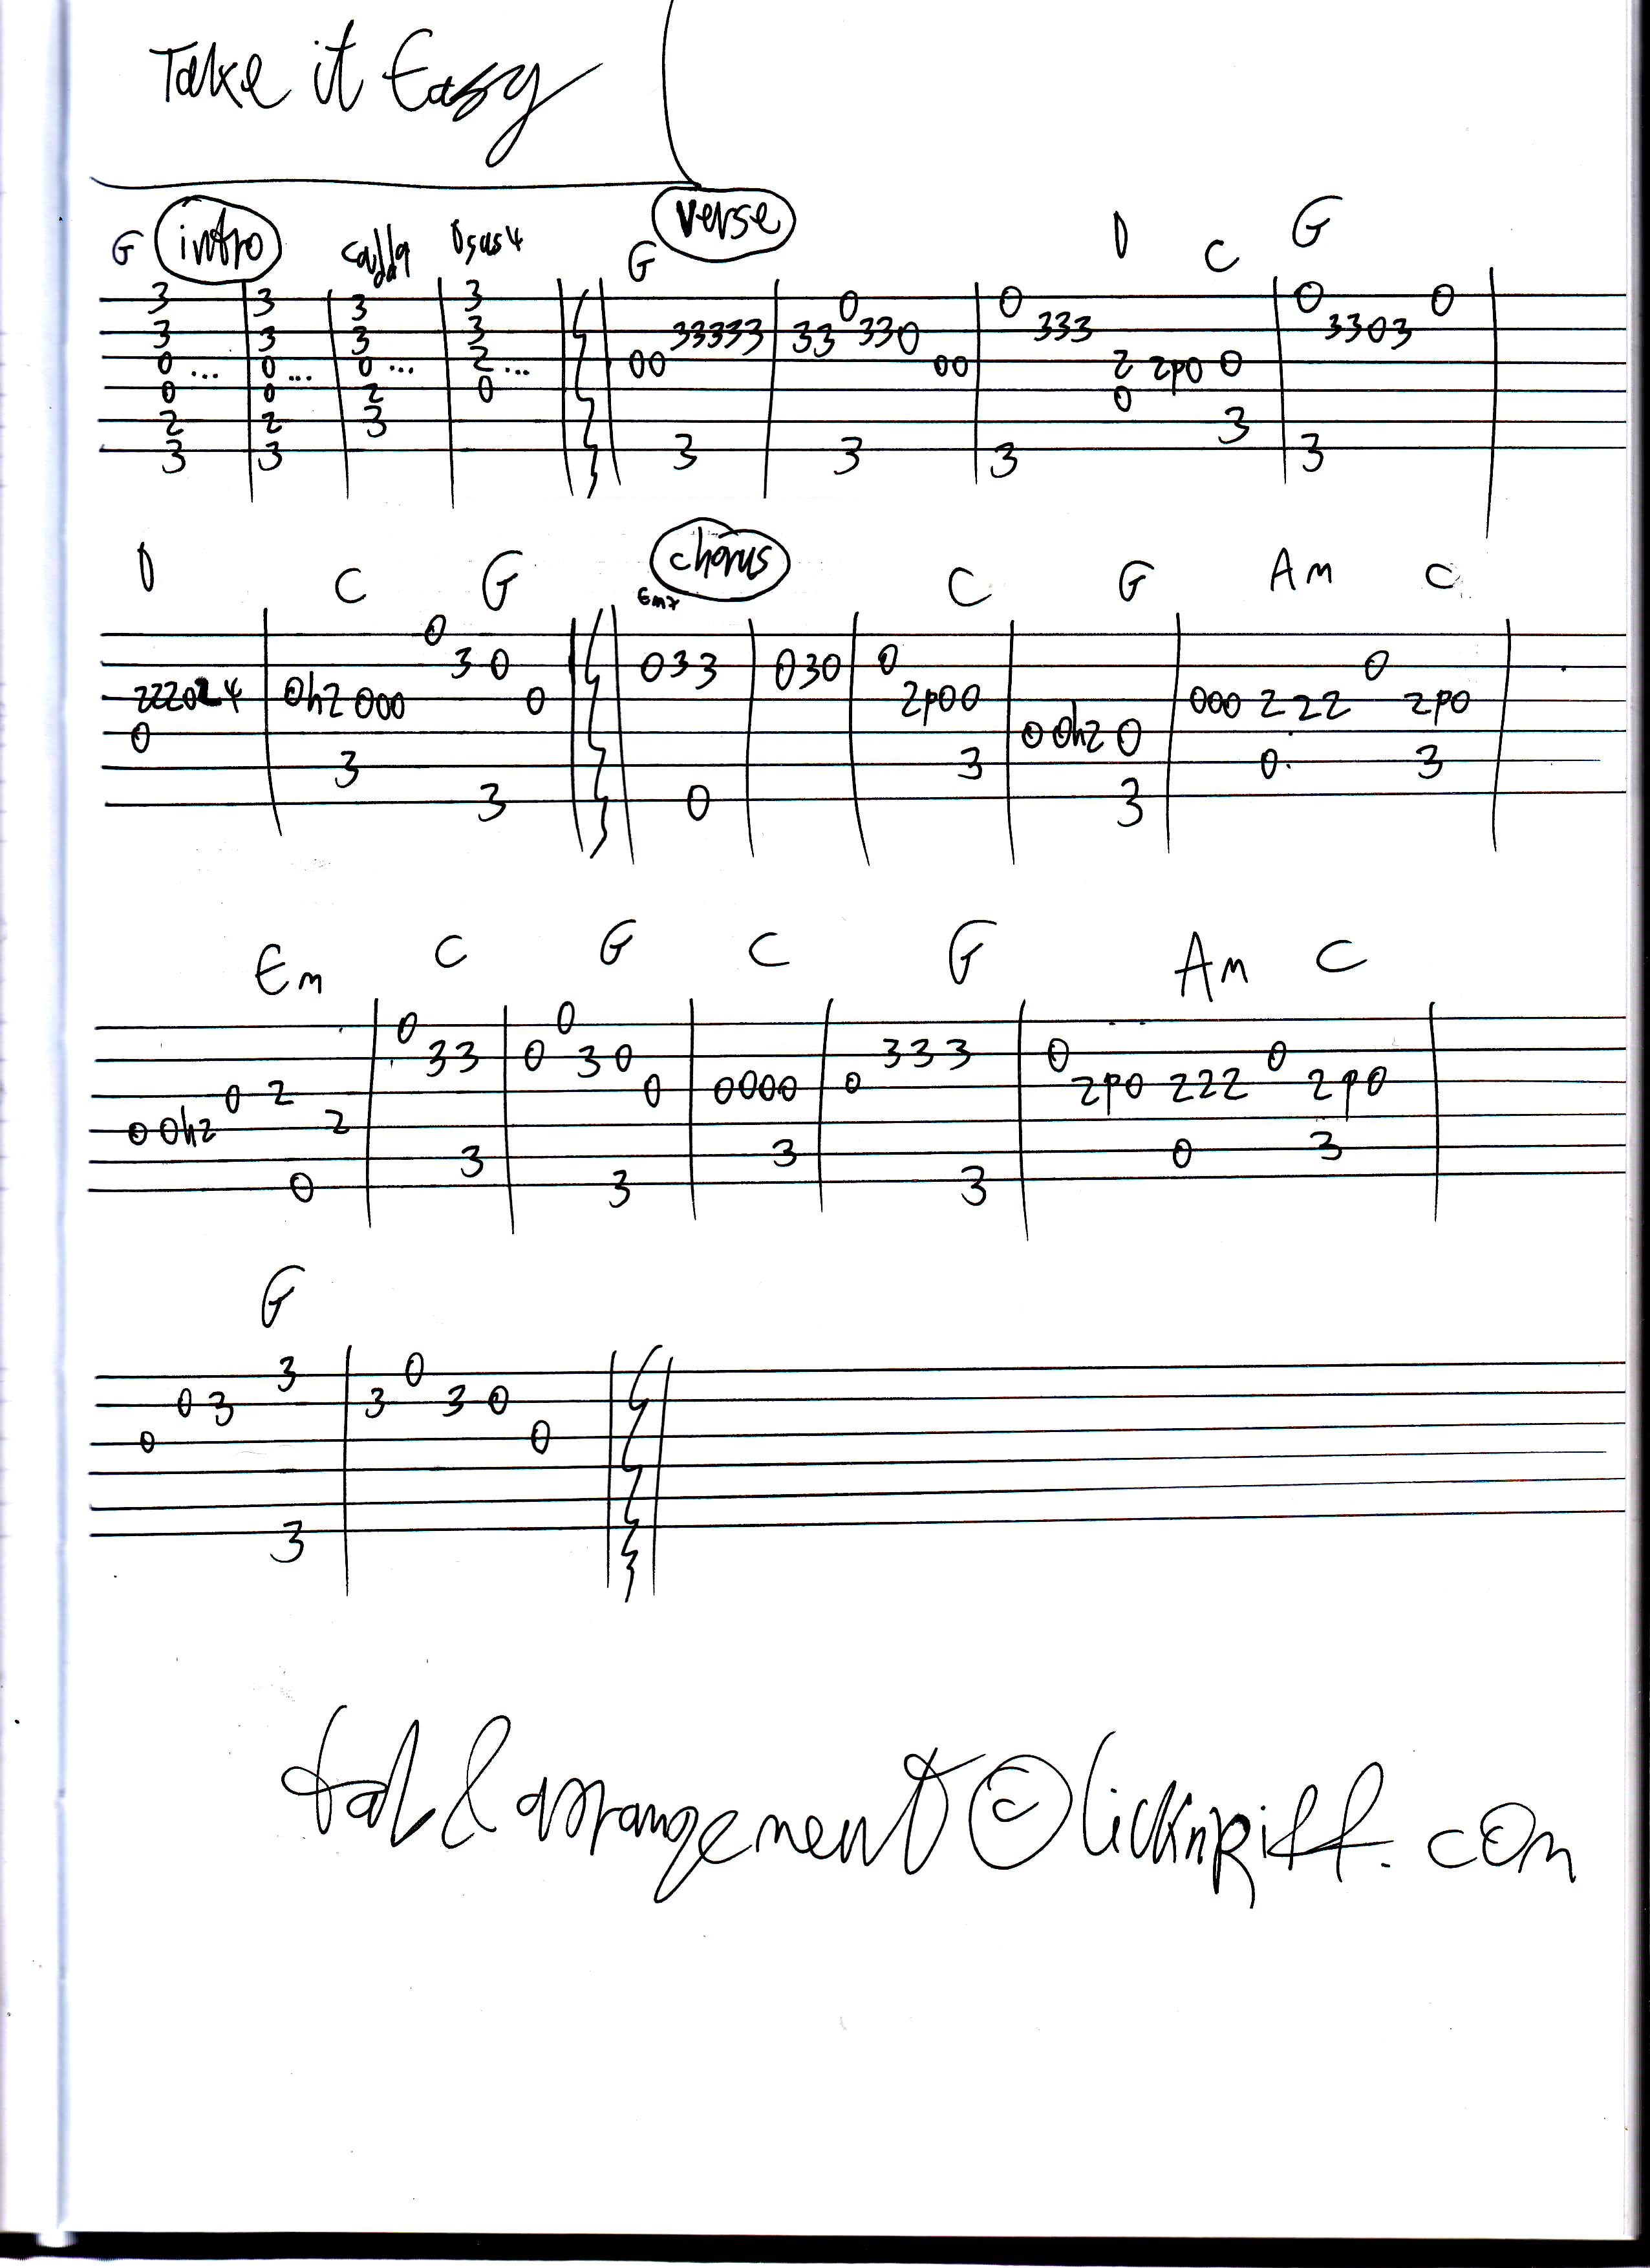 Take it Easy
G intro cadd9 Dsus4 G verse D C G
3 3 3 3 0 0 0 0
3 3 3 3 33333 33 330 333 3303
0... 0... 0... 2... 00 00 2 2p0 0
0 0 2 0 0
2 2 3 3
3 3 3 3 3 3
D C G Em7 chorus C G Am C
0
3 0 033 030 0 0
222024 0h2 000 0 2p00 000 2 22 2p0
0 0 0h2 0
3 3 0 3
3 0 3
Em C G C G Am C
0 0
33 0 30 333 0 0
0 2 0 0000 0 2p0 222 2p0
0 0h2 2
3 3 0 3
0 3 3
G
3 0
0 3 3 3 0
0 0
3
tab & arrangement © licknRiff.com